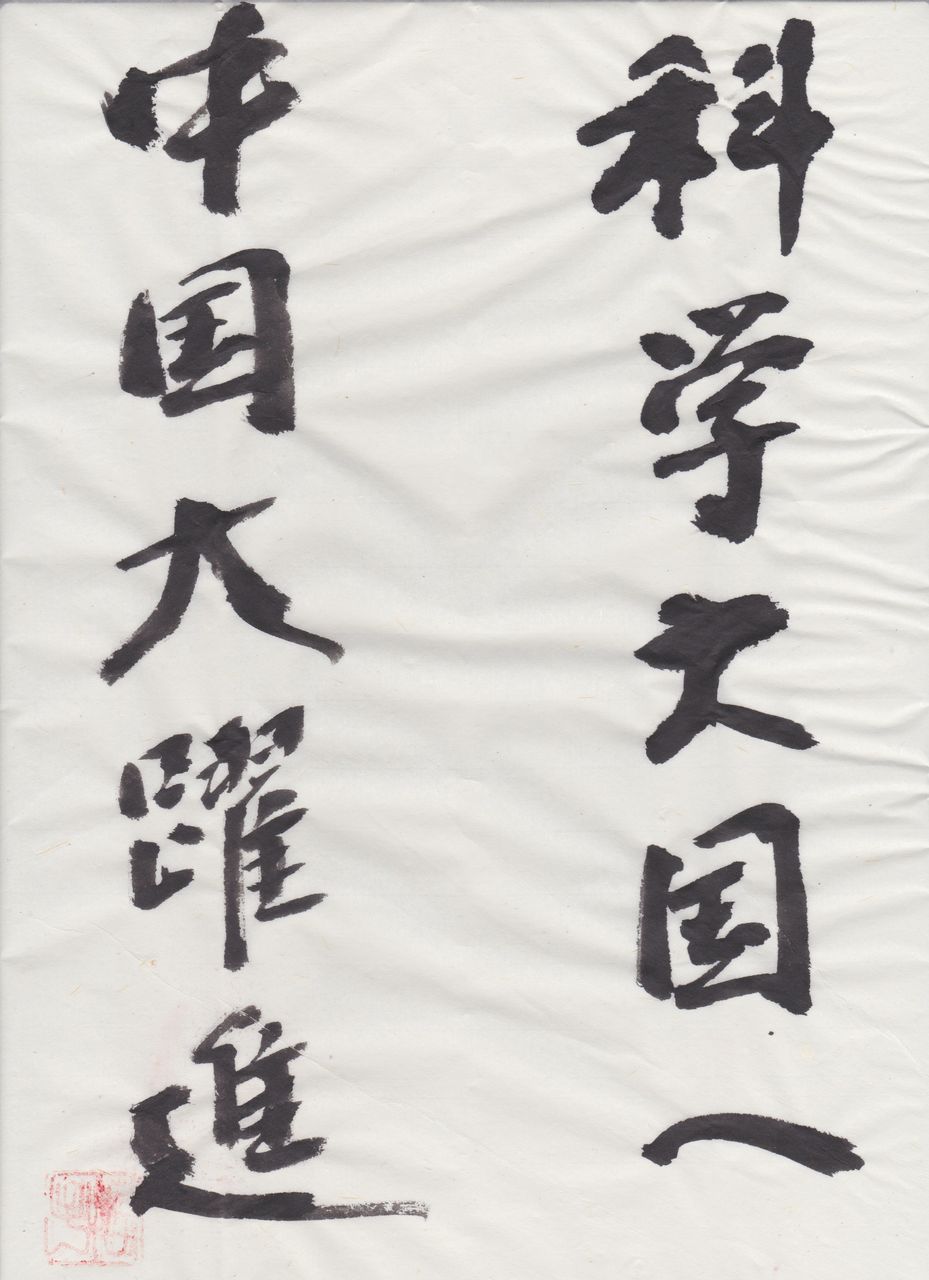 科学大国へ
中国大躍進